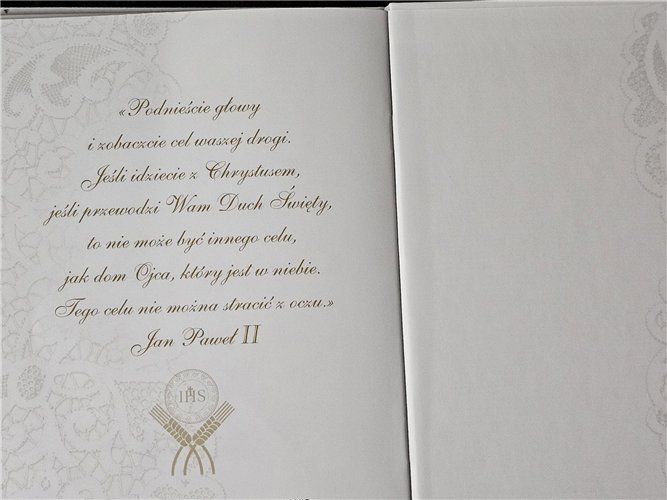 «Podnieście głowy
i zobaczcie cel waszej drogi.
Jeśli idziecie z Chrystusem,
jeśli przewodzi Wam Duch Święty,
to nie może być innego celu,
jak dom Ojca, który jest w niebie.
Tego celu nie można stracić z oczu.»
Jan Paweł II
IHS